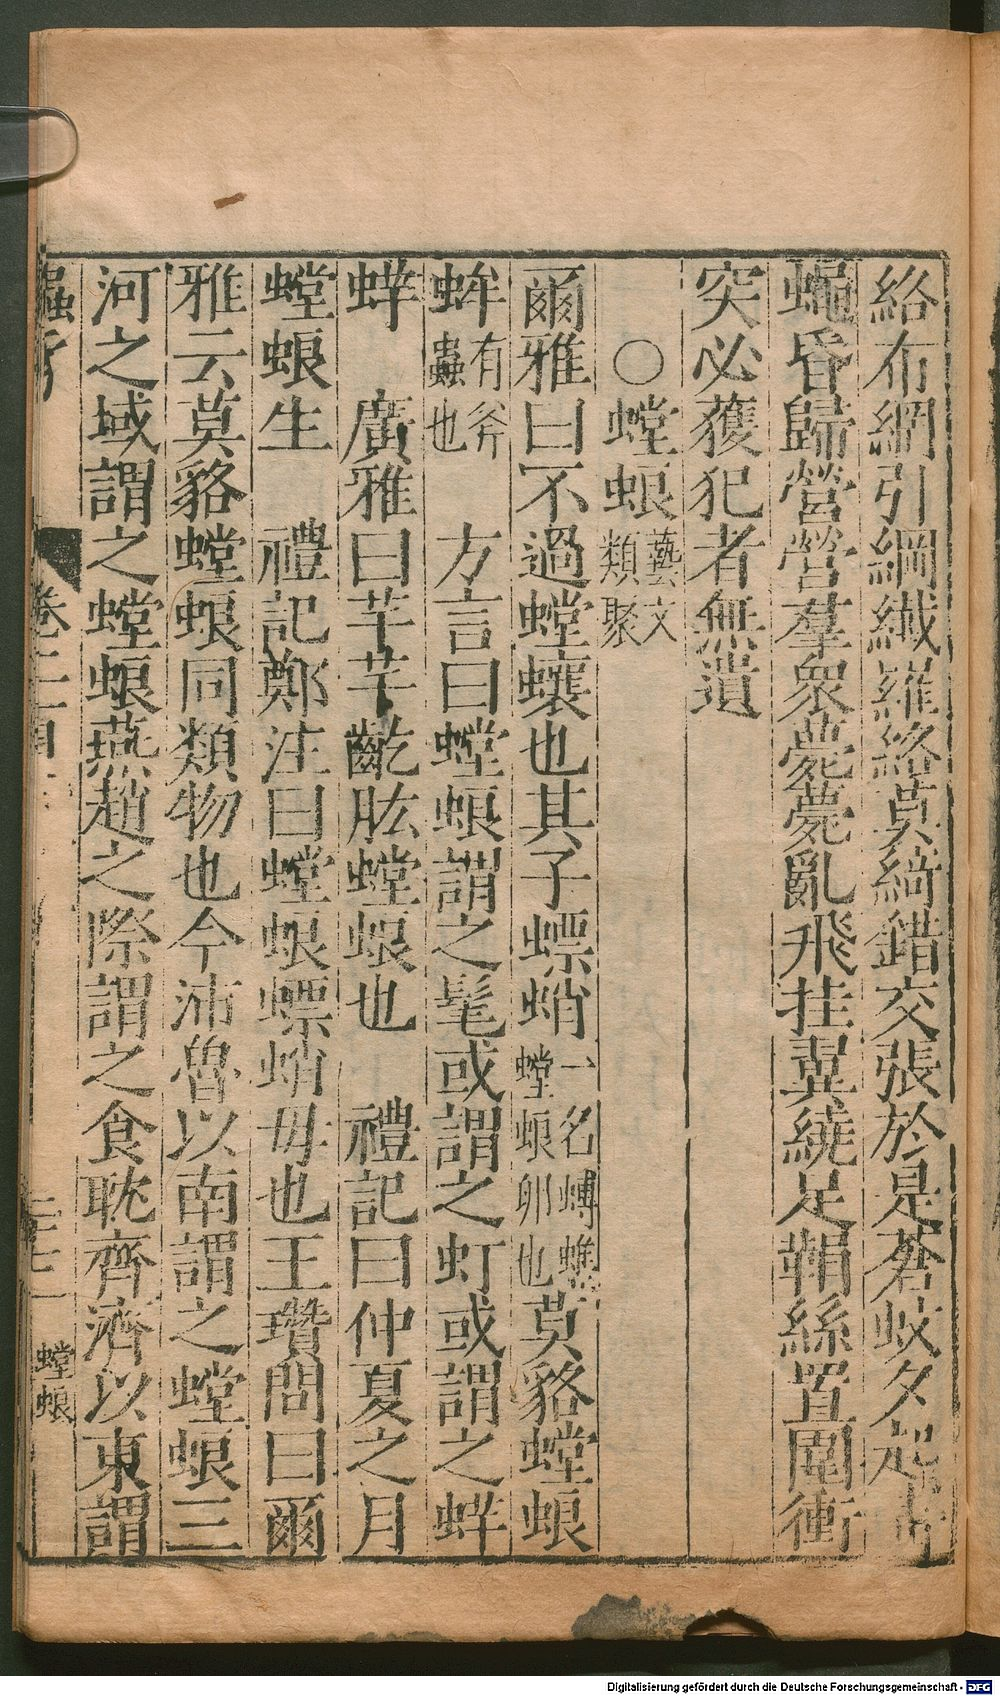 絡布網引綱纖羅絡莫綺錯交張於是蒼蚊夕起
蠅昏歸營營羣衆薨薨亂飛挂翼繞足鞙絲置圍衝
突必獲犯者無遺
○螳蜋藝文類聚
爾雅曰不過螳蠰也其子蜱蛸一名䗚蟭螳蜋卵也莫貉螳蜋
蛑有斧蟲也 方言曰螳蜋謂之髦或謂之虰或謂之蛘
蛘 廣雅曰芊芊齕肬螳蜋也 禮記曰仲夏之月
螳蜋生 禮記鄭注曰螳蜋螵蛸毋也王瓚問曰爾
雅云莫貉螳蜋同類物也今沛魯以南謂之螳蜋三
河之域謂之螳蜋燕趙之際謂之食眈齊濟以東謂
螳蜋
Digitalisierung gefördert durch die Deutsche Forschungsgemeinschaft - DFG